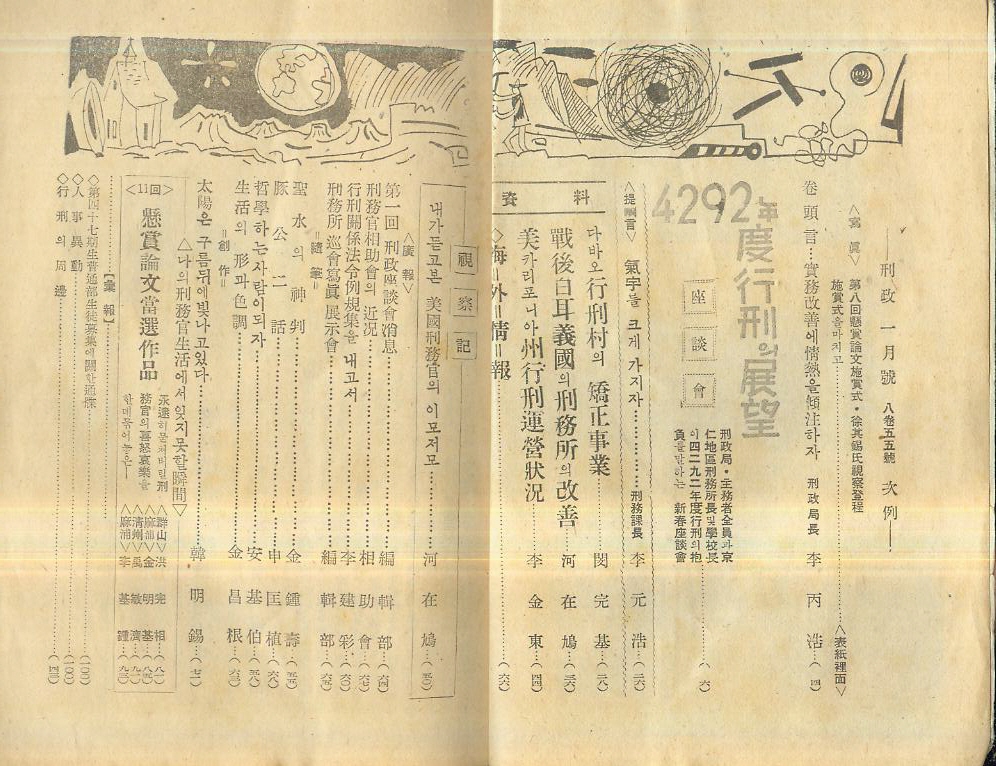 刑政 一月號 八卷五五號 次例
<寫眞> 第八回懸賞論文施賞式·徐其錫氏視察登程
施賞式을마치고 <表紙裡面>
卷頭言…實務改善에情熱을傾注하자 刑政局長 李丙浩…(四)
4292年度行刑의展望
座談會
刑政局·主務者全員과京
仁地區刑務所長및學校長
이四二九二年度行刑의抱
負를말하는 新春座談會 (六)
<提言> 氣宇를 크게 가지자 刑務課長 李元浩…(二六)
資料
다바오行刑村의 矯正事業 閔完基…(二八)
戰後白耳義國의刑務所의改善 河在鳩…(三六)
美카리포니아州行刑運營狀況 李金東…(四四)
◇海外情報 (六六)
視察記
내가듣고본 美國刑務官의 이모저모 河在鳩…(五〇)
<廣報>
第一回 刑政座談會消息 編輯部…(六四)
刑務官相助會의 近況 相助會…(六五)
行刑關係法令例規集을 내고서 李建彩…(六五)
刑務所 巡會寫眞 展示會 編輯部…(六五)
=隨筆=
聖水의 神判 金鍾壽…(五五)
豚公二話 申匡植…(六〇)
哲學하는 사람이되자 安基伯…(五八)
生活의 形과 色調 金昌根…(六三)
=創作=
太陽은 구름뒤에빛나고있다 韓明錫…(七二)
△나의刑務官生活에서잊지못할瞬間▽
<11回> 懸賞論文當選作品
永遠히묻쳐버릴刑
務官의喜怒哀樂을
한데묶어놓은
<群山> 洪完相…(八一)
<麻浦> 金明基…(八四)
<淸州> 禹敏濟…(九一)
<麻浦> 李基鍾…(九三)
【彙報】
◇第四十七期生普通部生徒募集에關한通牒 (一〇〇)
◇人事異動 (一〇〇)
◇行刑의周邊 (四三)